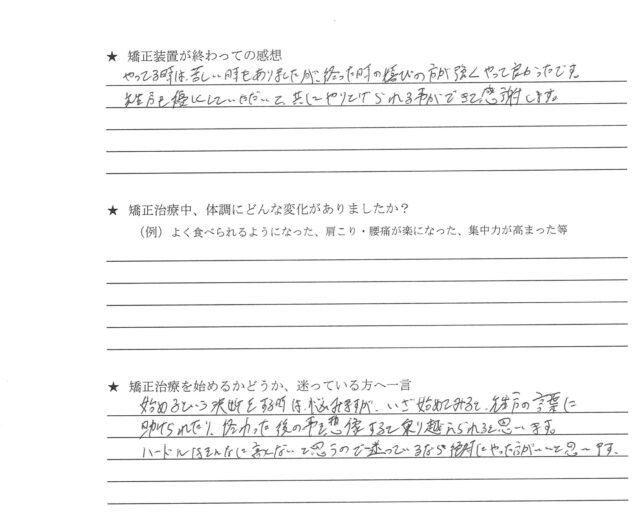 ★ 矯正装置が終わっての感想
やってる時は、苦しい時もありましたが、終った時の喜びの方が強くやって良かったです。
先生方も優しくしていただいて、共にやりとげられる事ができて感謝します。
★ 矯正治療中、体調にどんな変化がありましたか？
（例）よく食べられるようになった、肩こり・腰痛が楽になった、集中力が高まった等
★ 矯正治療を始めるかどうか、迷っている方へ一言
始めるという決断をする時は、悩みますが、いざ始めてみると、先生方の言葉に
助けられたり、終わった後の事を想像すると乗り越えられると思います。
ハードルはそんなに高くないと思うので迷っているなら絶対にやった方がいいと思います。